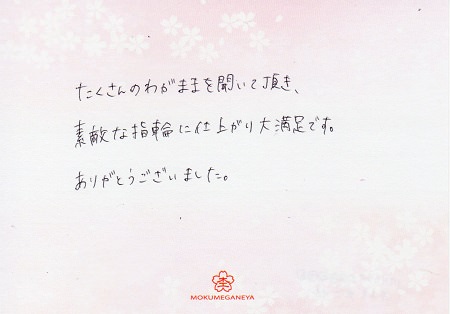 たくさんのわがままを聞いて頂き、
素敵な指輪に仕上がり大満足です。
ありがとうございました。
MOKUMEGANEYA